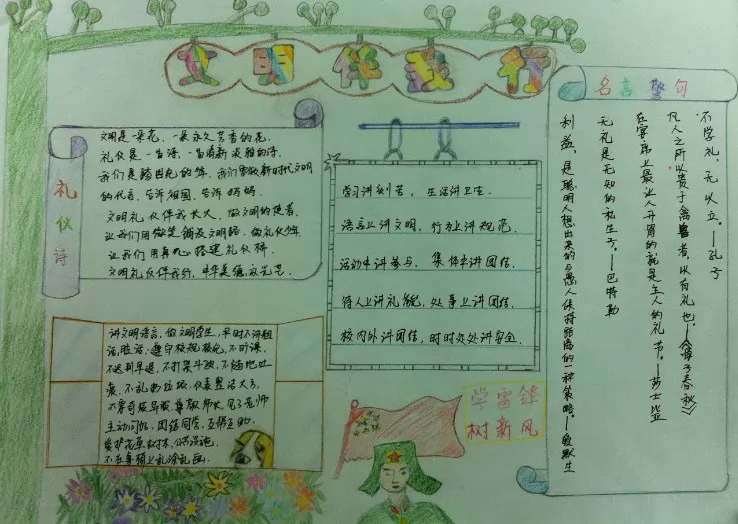 文明伴我行
礼仪诗
文明是一朵花，一朵永久芳香的花。
礼仪是一首诗，一首清新淡雅的诗。
我们是踏四化的,我们要做新时代文明
的代言，告诉祖国，告诉妈妈。
文明礼仪伴我长大，做文明的使者，
让我们用微笑铺设文明路，做礼仪
让我们用真心搭建礼仪桥。
文明礼仪伴我行，中华美德放光芒。
学习讲刻苦，生活讲卫生。
语言上讲文明，行为上讲规范。
活动中讲参与，集体中讲团结。
待人上讲礼貌，处事上讲团结。
校内外讲团结，时时处处讲安全。
名言警句
不学礼，无以立。——孔子
凡人之所以贵于禽兽者，以有礼也——《晏子春秋》
在宴席上最让人开胃的就是主人的礼节。——莎士比亚
无礼是无知的私生子。——巴特勒
利益，是聪明人想出来的与愚人保持距离的一种策略。——爱默生
讲文明语言，做文明学生，平时不讲粗
话，脏话，遵守校规校纪，不旷课，
不迟到早退，不打架斗殴，不随地吐
痰，不乱扔垃圾，仪表整洁大方，
不穿奇装异服，尊敬师长，见了老师
主动问好，团结同学，互帮互助，
爱护花草树木，公共设施，
不在桌椅上乱涂乱画。
学雷锋
树新风